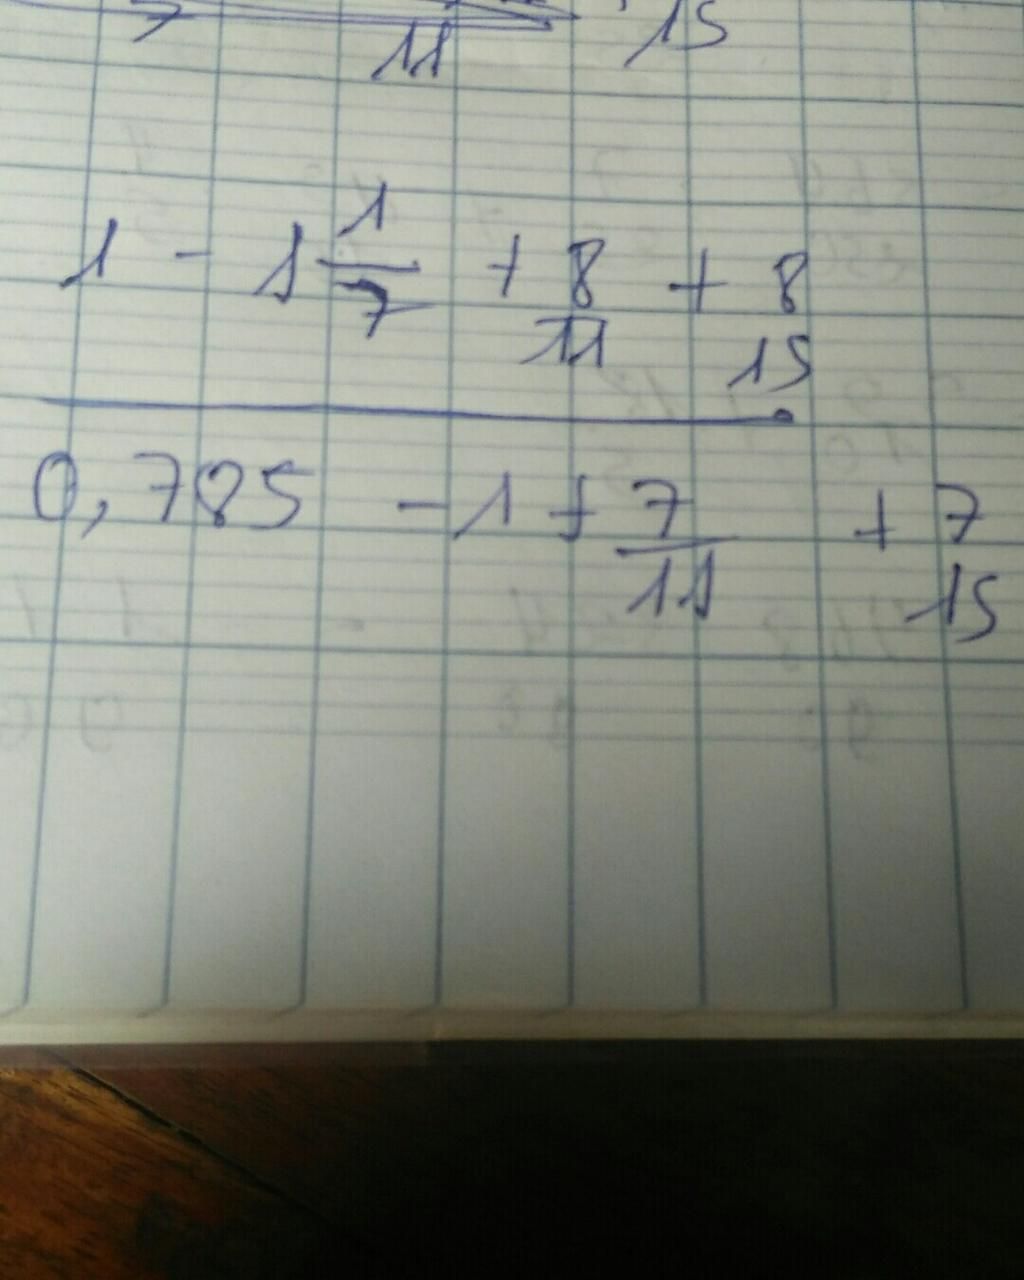 7 11 15
1 - 1 1/7 + 8/11 + 8/15
0,785 - 1 + 7/11 + 7/15